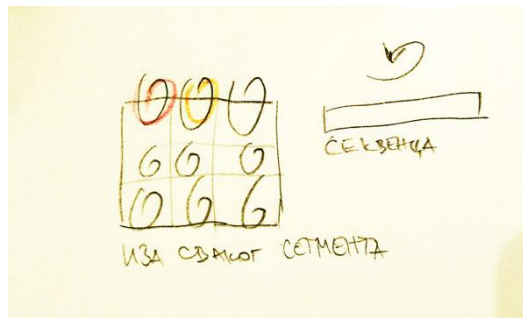 СЕКВЕНЦА
ИЗА СВАКОГ СЕГМЕНТА